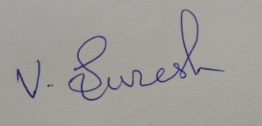 V. Suresh